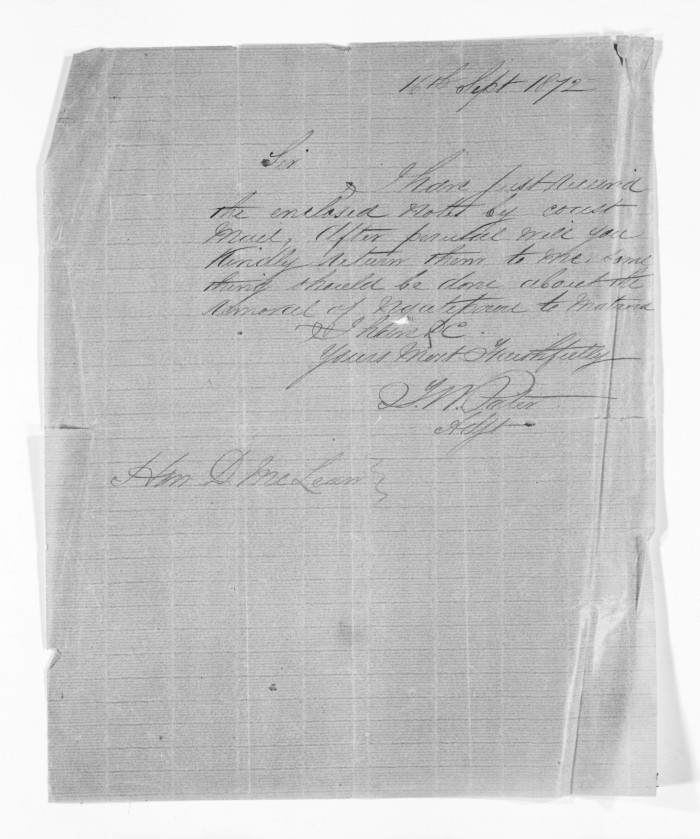 16th Sept 1872
Sir
I have just received
the enclosed notes by coast
Mail, After perusal will you
Kindly return them to me. Some
thing should be done about the
removal of to
I have &C.
Yours Most Faithfully
F. W.
Adjt
Hon D. McLean